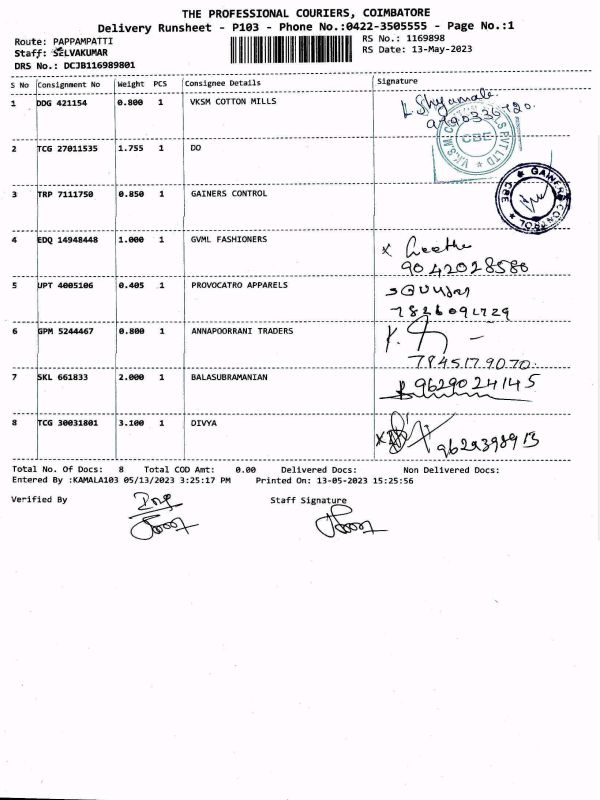 THE PROFESSIONAL COURIERS, COIMBATORE
Delivery Runsheet - P103 - Phone No.:0422-3505555 - Page No.:1
Route: PAPPAMPATTI
RS No.: 1169898
Staff: SELVAKUMAR
RS Date: 13-May-2023
DRS No.: DCJB116989801
S No Consignment No Weight PCS Consignee Details Signature
1 DDG 421154 0.800 1 VKSM COTTON MILLS
L. Shyamala
CBE
2 TCG 27011535 1.755 1 DO
3 TRP 7111750 0.850 1 GAINERS CONTROL
GAINERS CONTROL CBE
4 EDQ 14948448 1.000 1 GVML FASHIONERS
x Geetha
9042028580
5 UPT 4005106 0.405 1 PROVOCATRO APPARELS
6 GPM 5244467 0.800 1 ANNAPOORRANI TRADERS
7845179070
7 SKL 661833 2.000 1 BALASUBRAMANIAN
9629024145
8 TCG 30031801 3.100 1 DIVYA
9629398913
Total No. Of Docs: 8 Total COD Amt: 0.00 Delivered Docs: Non Delivered Docs:
Entered By :KAMALA103 05/13/2023 3:25:17 PM Printed On: 13-05-2023 15:25:56
Verified By Staff Signature